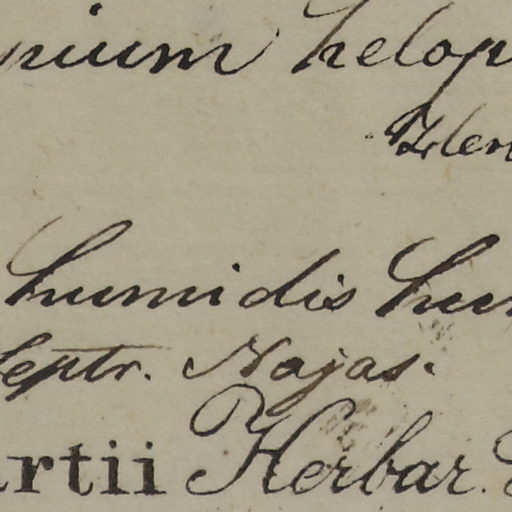 nium helop
humidis hu
Septr. Najas.
artii Herbar.